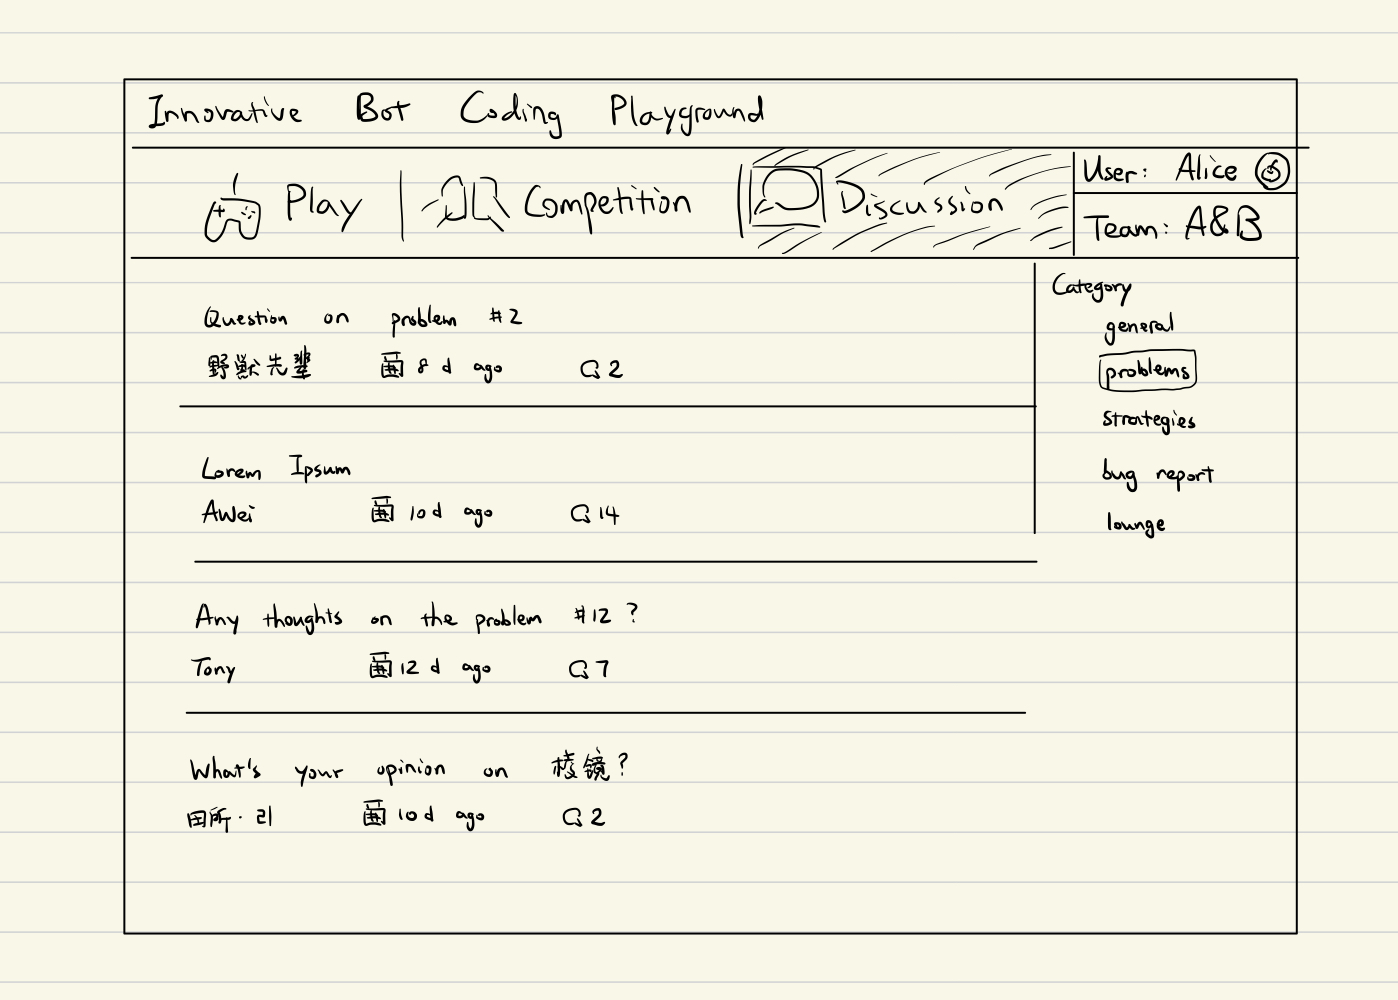 Innovative Bot Coding Playground
Play Competition Discussion
User: Alice
Team: A&B
Question on problem #2
野獣先輩 8 d ago 2
Lorem Ipsum
AWei 10 d ago 14
Any thoughts on the problem #12 ?
Tony 12 d ago 7
What's your opinion on 棱镜?
田所·리 10 d ago 2
Category
general
problems
strategies
bug report
lounge